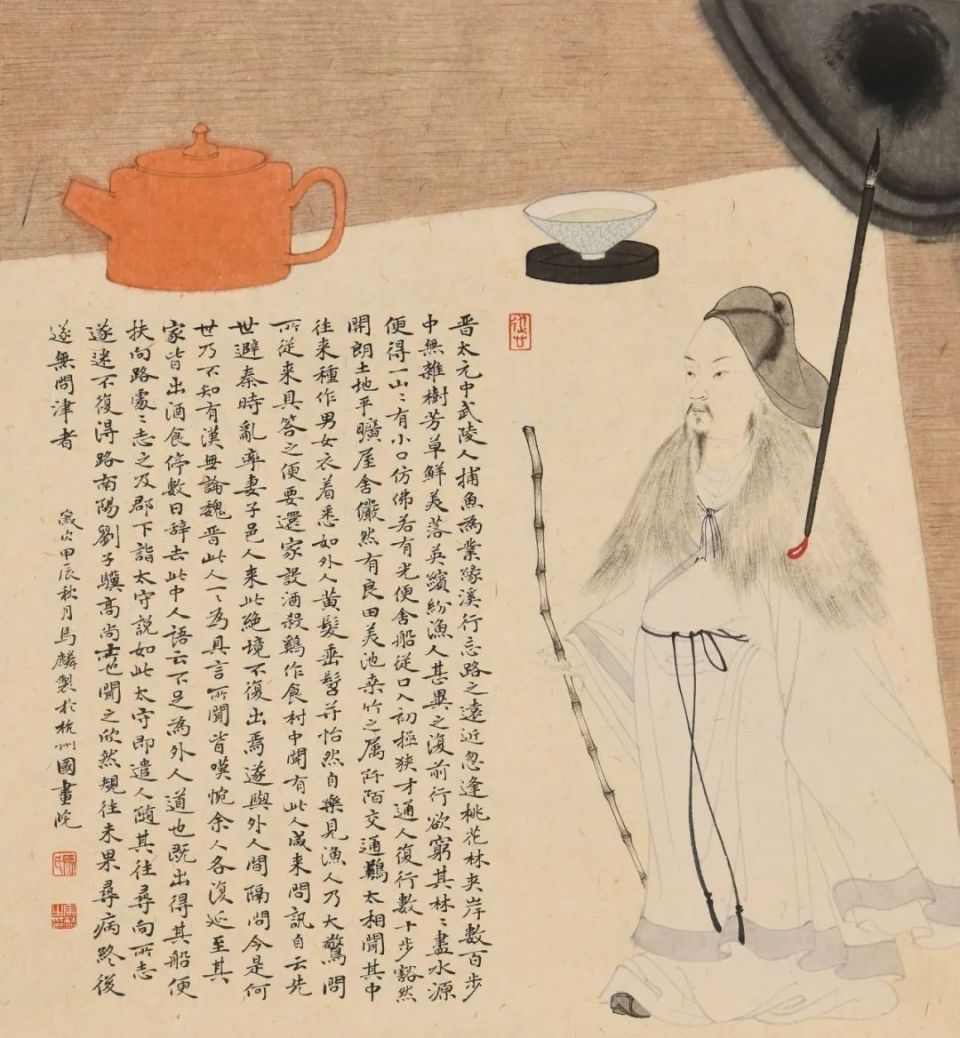 晋太元中武陵人捕魚為業緣溪行忘路之遠近忽逢桃花林夾岸數百步
中無雜樹芳草鮮美落英繽紛漁人甚異之復前行欲窮其林〻盡水源
便得一山〻有小口仿佛若有光便舍船從口入初極狹才通人復行數十步豁然
開朗土地平曠屋舍儼然有良田美池桑竹之属阡陌交通鷄犬相聞其中
往来種作男女衣着悉如外人黄髮垂髫并怡然自樂見漁人乃大驚問
所從来具答之便要還家設酒殺鷄作食村中聞有此人咸来問訊自云先
世避秦時亂率妻子邑人来此絶境不復出焉遂與外人間隔問今是何
世乃不知有漢無論魏晋此人一〻為具言所聞皆嘆惋余人各復延至其
家皆出酒食停數日辞去此中人語云不足為外人道也既出得其船便
扶向路處〻志之及郡下詣太守説如此太守即遣人隨其往尋向所志
遂迷不復得路南陽劉子驥高尚士也聞之欣然規往未果尋病終後
遂無問津者
歲次甲辰秋月馬麟製於杭州國畫院